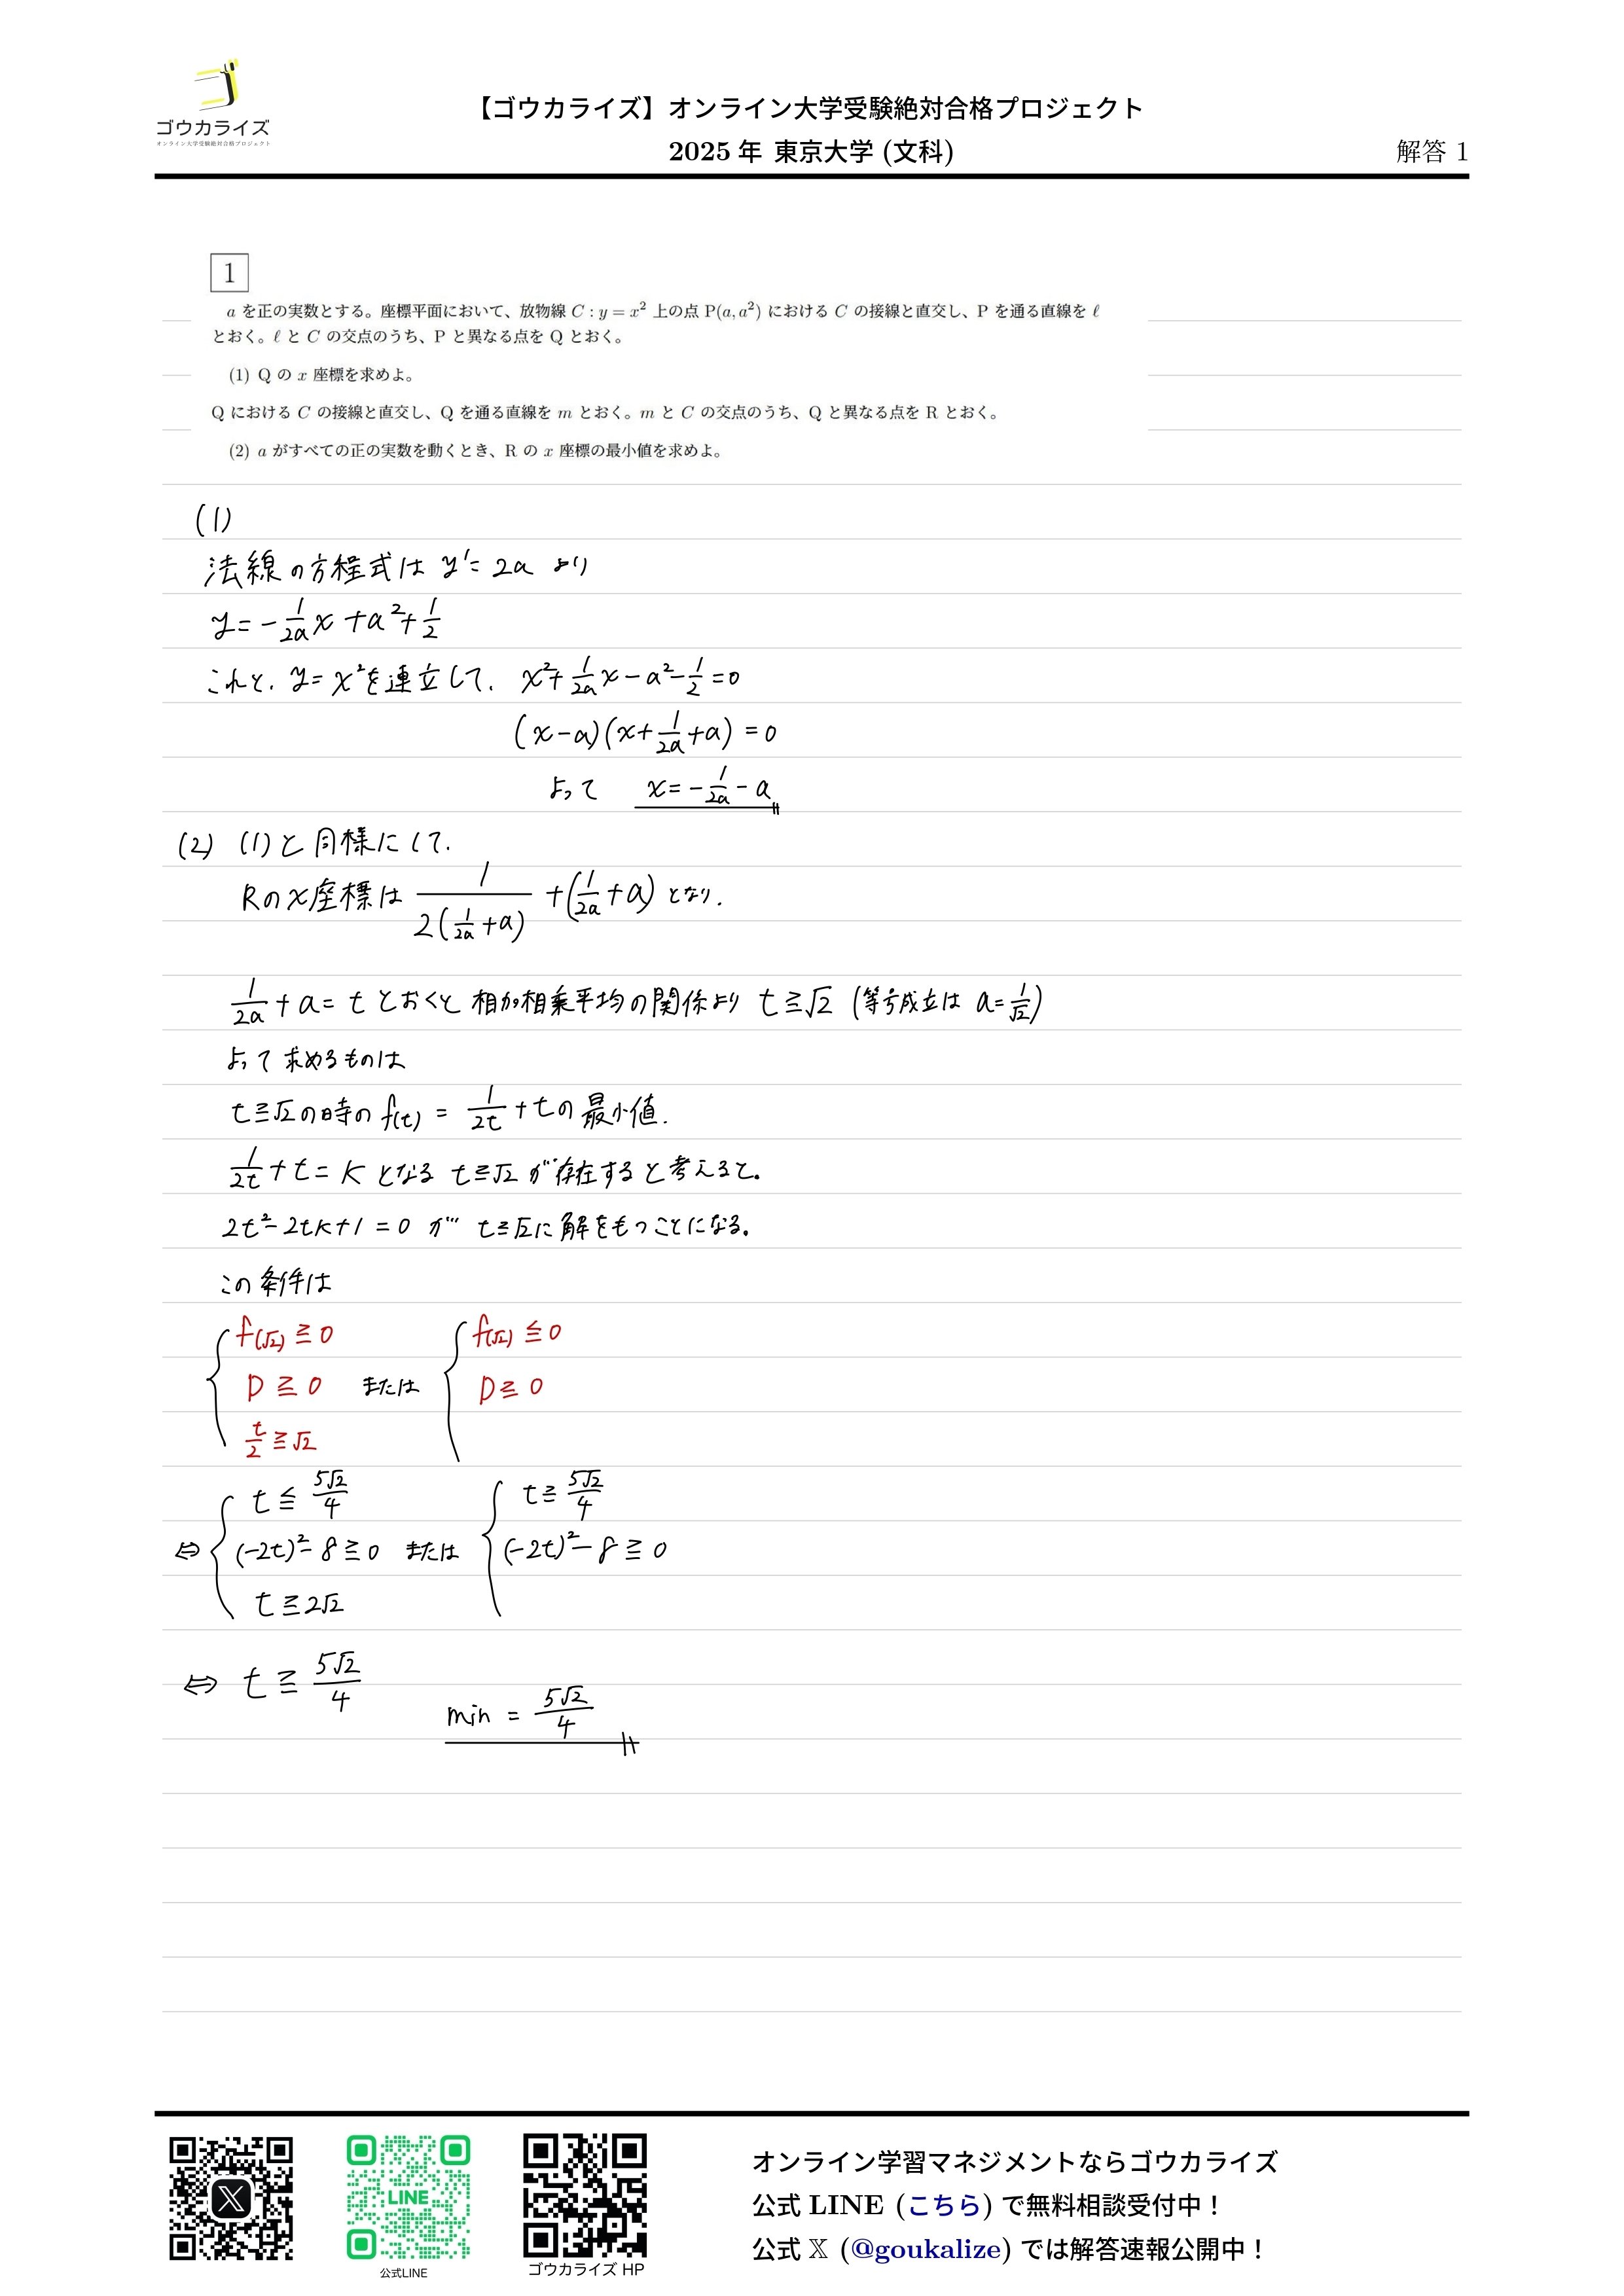 ゴウカライズ
オンライン大学受験絶対合格プロジェクト
【ゴウカライズ】オンライン大学受験絶対合格プロジェクト
2025 年 東京大学 (文科)
解答 1
1
a を正の実数とする。座標平面において、放物線 C : y = x² 上の点 P(a, a²) における C の接線と直交し、P を通る直線を ℓ
とおく。ℓ と C の交点のうち、P と異なる点を Q とおく。
(1) Q の x 座標を求めよ。
Q における C の接線と直交し、Q を通る直線を m とおく。m と C の交点のうち、Q と異なる点を R とおく。
(2) a がすべての正の実数を動くとき、R の x 座標の最小値を求めよ。
(1)
法線の方程式は y' = 2a より
y = -1/2a x + a² + 1/2
これと, y = x² を連立して, x² + 1/2a x - a² - 1/2 = 0
(x - a)(x + 1/2a + a) = 0
よって x = -1/2a - a
(2) (1)と同様にして,
Rのx座標は 1/2(1/2a + a) + (1/2a + a) となり,
1/2a + a = t とおくと 相加相乗平均の関係より t ≧ √2 (等号成立は a = 1/√2)
よって求めるものは
t ≧ √2 の時の f(t) = 1/2t + t の最小値.
1/2t + t = k となる t ≧ √2 が存在すると考えると。
2t² - 2tk + 1 = 0 が t ≧ √2 に解をもつことになる。
この条件は
f(√2) ≧ 0 f(√2) ≦ 0
D ≧ 0 または D ≧ 0
t/2 ≧ √2
t ≦ 5√2/4 t ≧ 5√2/4
⇔ (-2t)² - 8 ≧ 0 または (-2t)² - 8 ≧ 0
t ≧ 2√2
⇔ t ≧ 5√2/4
min = 5√2/4
LINE
公式LINE
ゴウカライズ HP
オンライン学習マネジメントならゴウカライズ
公式 LINE (こちら) で無料相談受付中！
公式 𝕏 (@goukalize) では解答速報公開中！